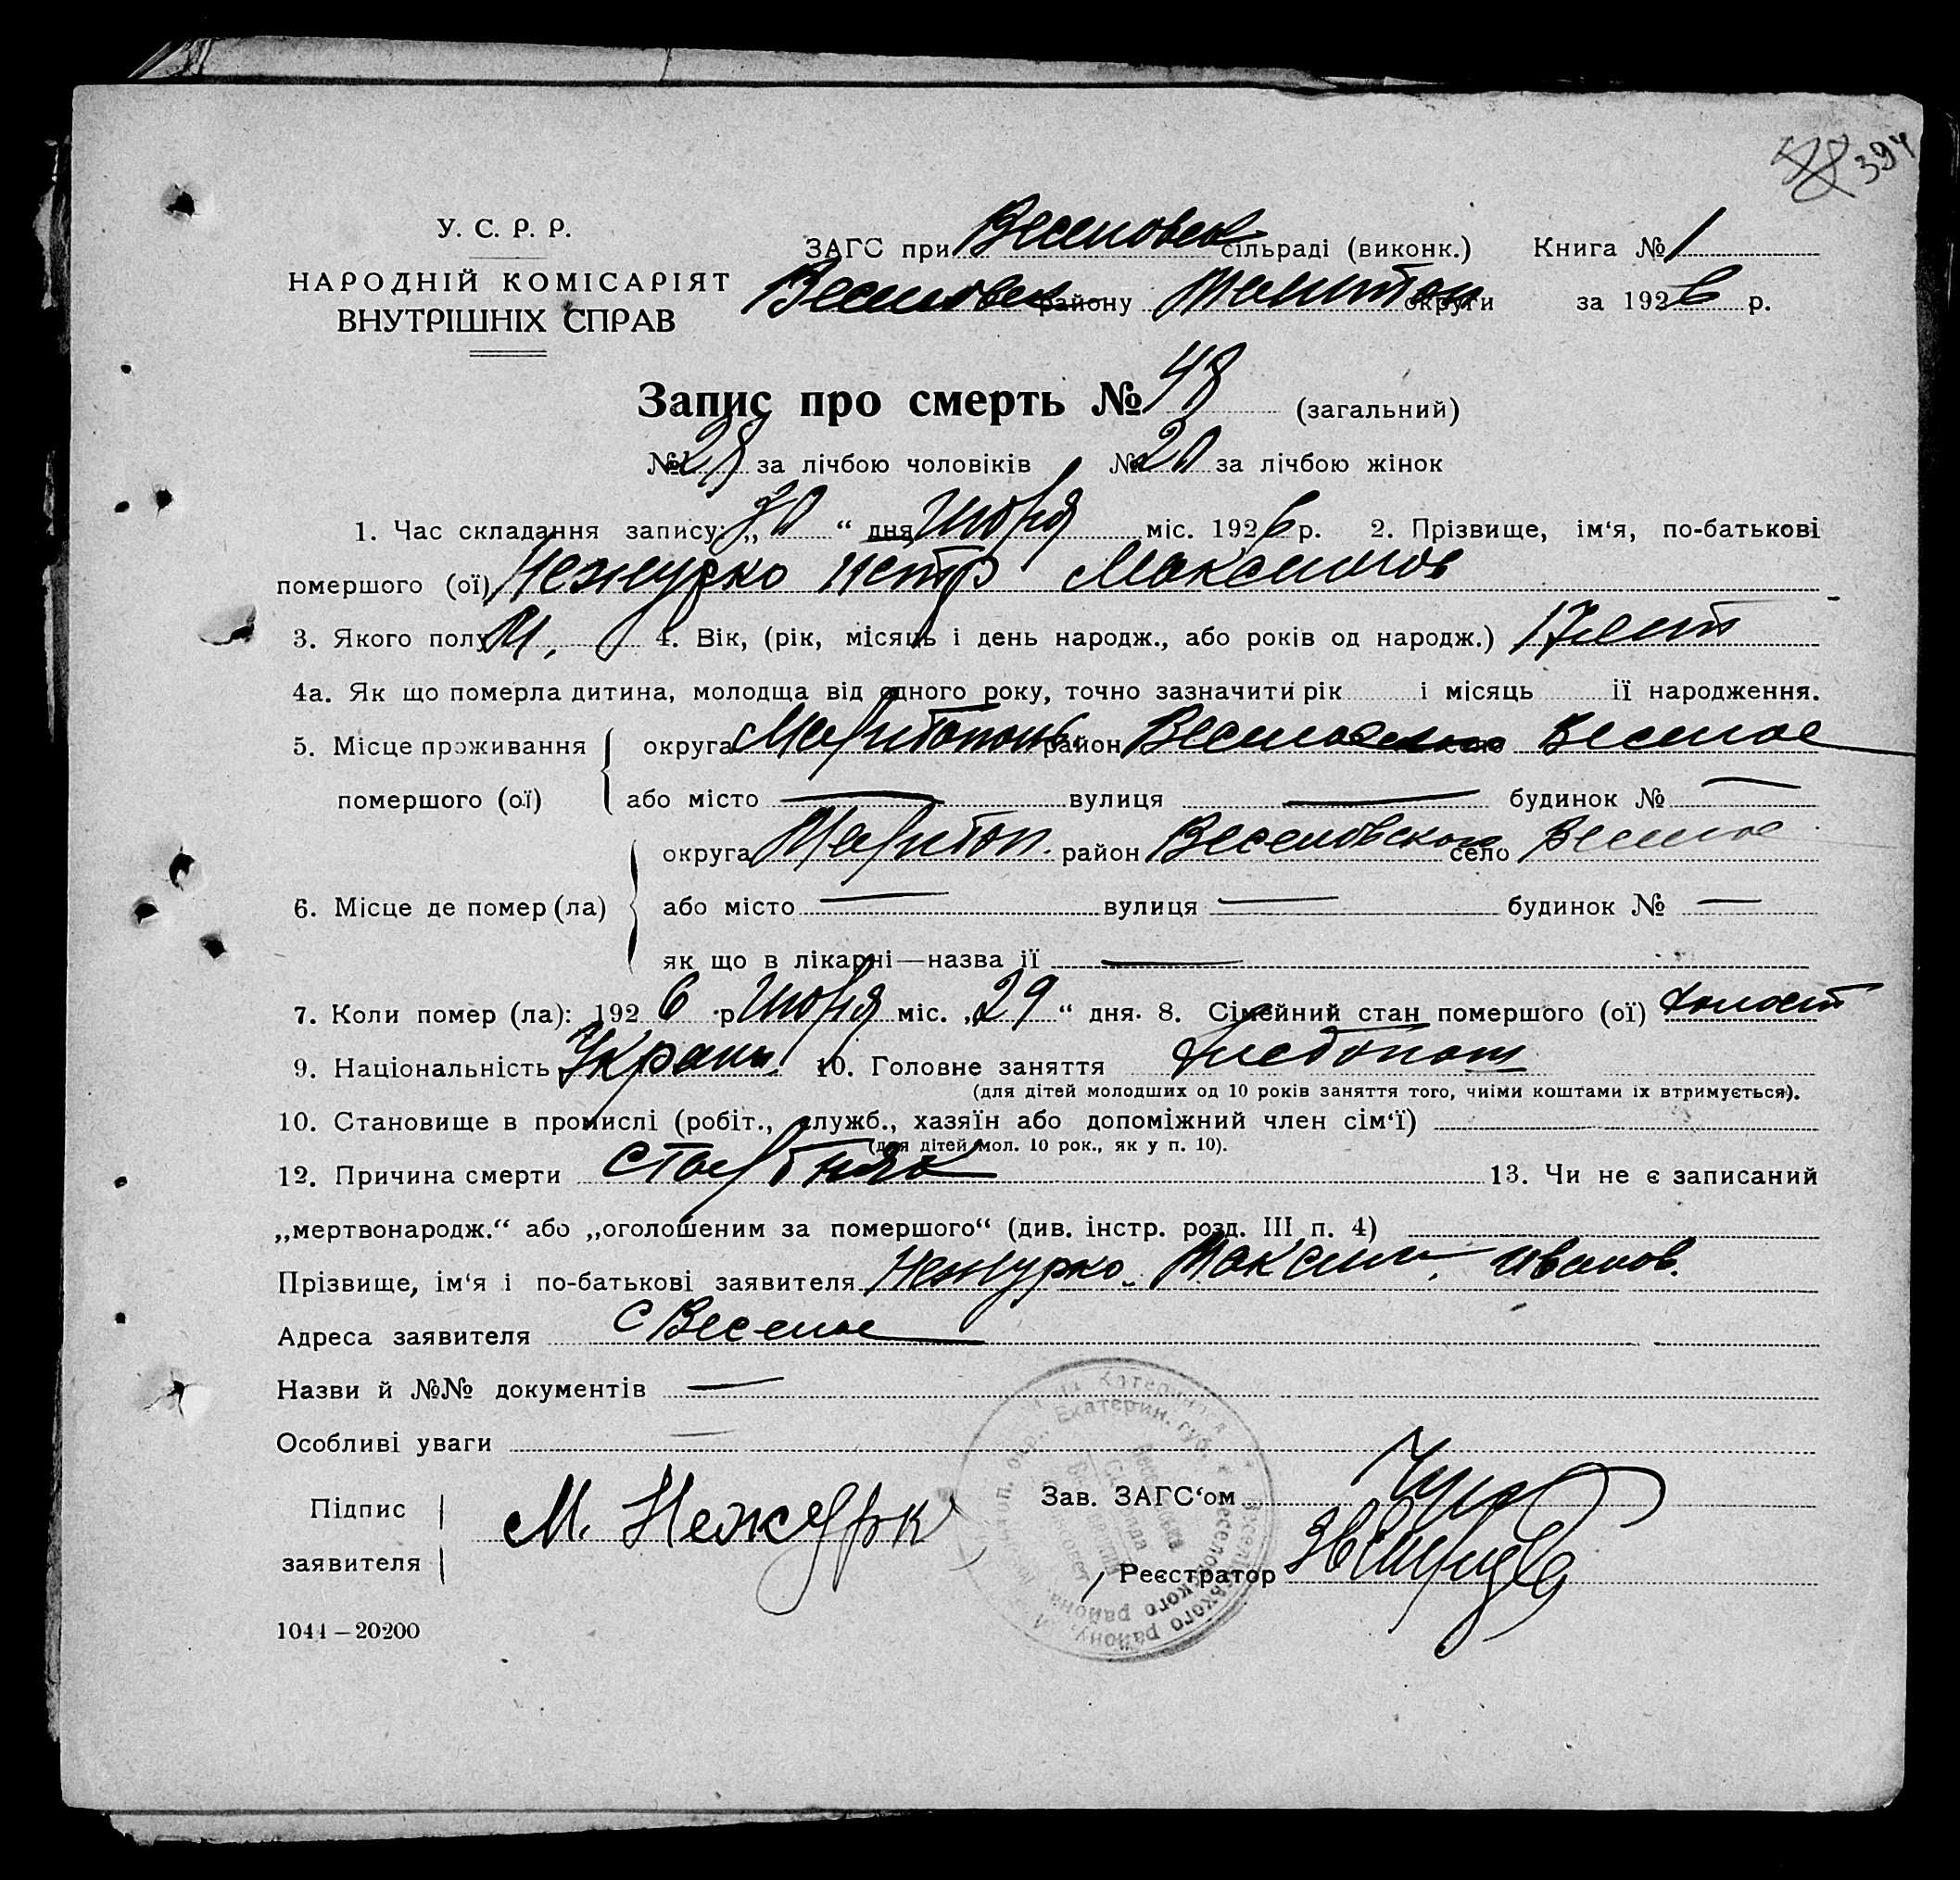 394
У. С. Р. Р.
НАРОДНІЙ КОМІСАРІЯТ
ВНУТРІШНІХ СПРАВ
ЗАГС при Веселовск сільраді (виконк.) Книга № 1
Веселовск району Мелитоп округи за 1926 р.
Запис про смерть № 48 (загальний)
№ 28 за лічбою чоловіків № 20 за лічбою жінок
1. Час складання запису: „30“ дня Июня міс. 1926 р. 2. Прізвище, ім‘я, по-батькові
помершого (ої) Нежурко Петр Максимов
3. Якого полу М. 4. Вік, (рік, місяць і день народж., або років од народж.) 17 лет
4а. Як що померла дитина, молодща від одного року, точно зазначити рік і місяць ії народження.
5. Місце проживання помершого (ої) округа Мелитополь район село Веселое
або місто — вулиця — будинок № —
6. Місце де помер (ла) округа Мелитоп. район Веселовского село Веселое
або місто — вулиця — будинок № —
як що в лікарні—назва ії —
7. Коли помер (ла): 1926 р Июня міс. „29“ дня. 8. Сімейний стан помершого (ої) Холост
9. Національність Украин. 10. Головне заняття Хлебопаш
(для дітей молодших од 10 років заняття того, чиіми коштами їх втримується).
10. Становище в промислі (робіт., служб., хазяїн або допоміжний член сім‘ї)
(для дітей мол. 10 рок., як у п. 10).
12. Причина смерти Столбняк 13. Чи не є записаний
„мертвонародж.“ або „оголошеним за помершого“ (див. інстр. розд. III п. 4)
Прізвище, ім‘я і по-батькові заявителя Нежурко Максим Иванов.
Адреса заявителя с Веселое
Назви й №№ документів —
Особливі уваги —
Підпис заявителя М. Нежурк
Зав. ЗАГС‘ом
Реєстратор
1044—20200